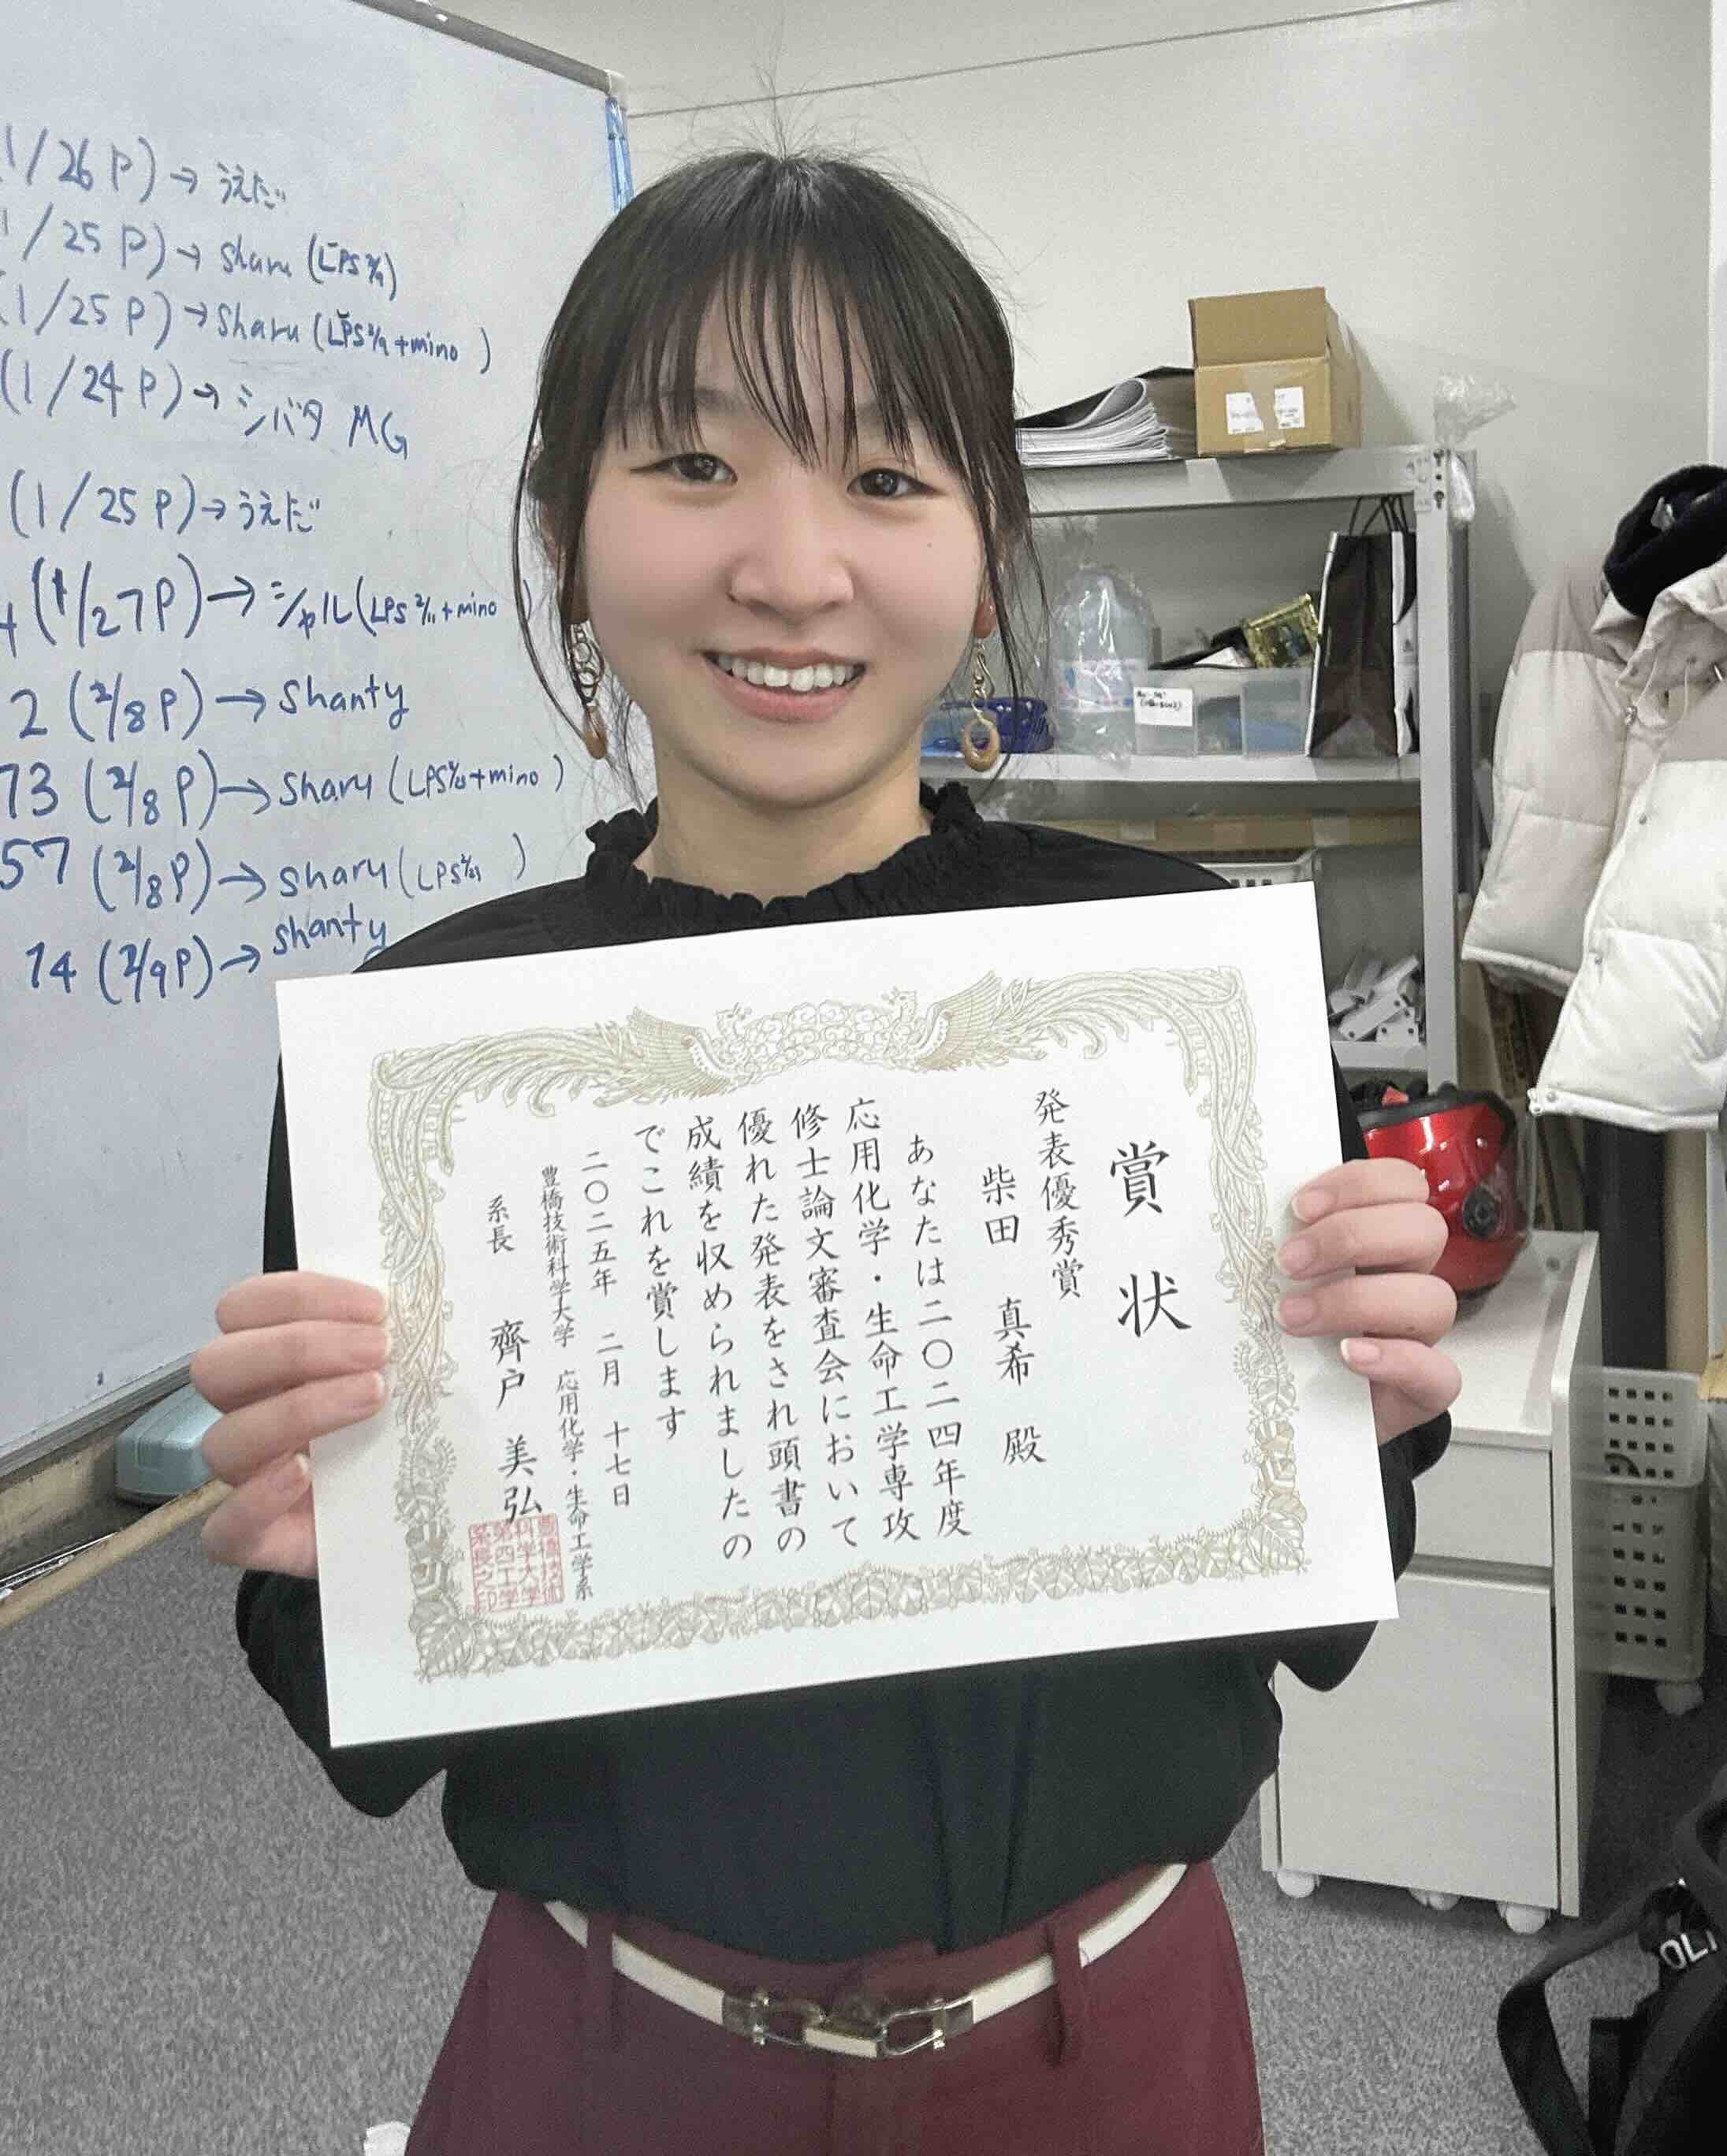 1/26 P) → うえだ
1/25 P) → Sharu (LPS
(1/25 P) → Sharu (LPS + mino )
(1/24 P) → シバタ MG
(1/25 P) → うえだ
(1/27 P) → シャル (LPS 2/11 + mino
2 (2/8 P) → Shanty
73 (2/8 P) → Sharu (LPS + mino )
57 (2/8 P) → Sharu (LPS )
74 (2/9 P) → Shanty
賞状
発表優秀賞
柴田 真希 殿
あなたは二〇二四年度
応用化学・生命工学専攻
修士論文審査会において
優れた発表をされ頭書の
成績を収められましたの
でこれを賞します
二〇二五年 二月 十七日
豊橋技術科学大学 応用化学・生命工学系
系長 齊戸 美弘
豊橋技術
科学大学
第四工学
系長之印
OLI